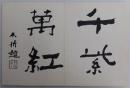 千紫
萬紅